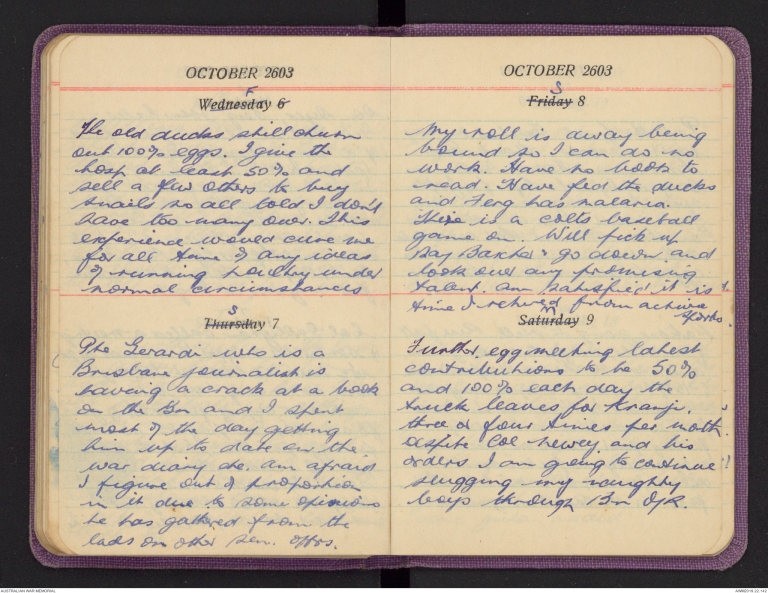 OCTOBER 2603
F
Wednesday 6
The old ducks still churn
out 100% eggs. I give the
hosp at least 50% and
sell a few others to buy
snails so all told I don't
have too many over. This
experience would cure me
for all time of any ideas
of running poultry under
normal circumstances
S
Thursday 7
Pte Gerardi who is a
Brisbane journalist is
having a crack at a book
on the Bn and I spent
most of the day getting
him up to date on the
war diary etc. Am afraid
I figure out of proportion
in it due to some opinions
he has gathered from the
lads on other sen. offrs.
OCTOBER 2603
S
Friday 8
My roll is away being
bound so I can do no
work. Have no books to
read. Have fed the ducks
and Ferg has malaria.
There is a colts baseball
game on. Will pick up
Ray Baxter & go down and
look over any promising
talent. am satisfied it is
time I retired from active
sports.
M
Saturday 9
Further egg meeting latest
contributions to be 50%
and 100% each day the
truck leaves for Kranji.
three or four times per mth.
despite Col Newey and his
orders I am going to continue
slugging my naughty
boys through Bn O/R.
AUSTRALIAN WAR MEMORIAL